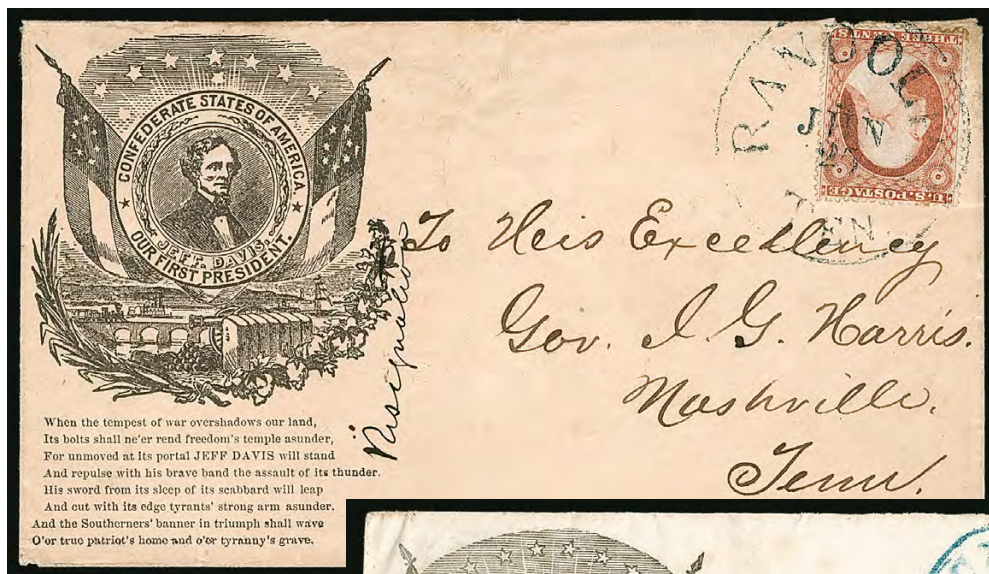 CONFEDERATE STATES OF AMERICA.
JEFF. DAVIS,
OUR FIRST PRESIDENT.
When the tempest of war overshadows our land,
Its bolts shall ne'er rend freedom's temple asunder,
For unmoved at Its portal JEFF DAVIS will stand
And repulse with his brave band the assault of its thunder.
His sword from its sleep of its scabbard will leap
And cut with its edge tyrants' strong arm asunder.
And the Southerners' banner in triumph shall wave
O'er true patriot's home and o'er tyranny's grave.
RANDOL
JUN
TEN
THREE CENTS
U.S. POSTAGE
To His Excellency
Gov. I. G. Harris.
Nashville.
Tenn.